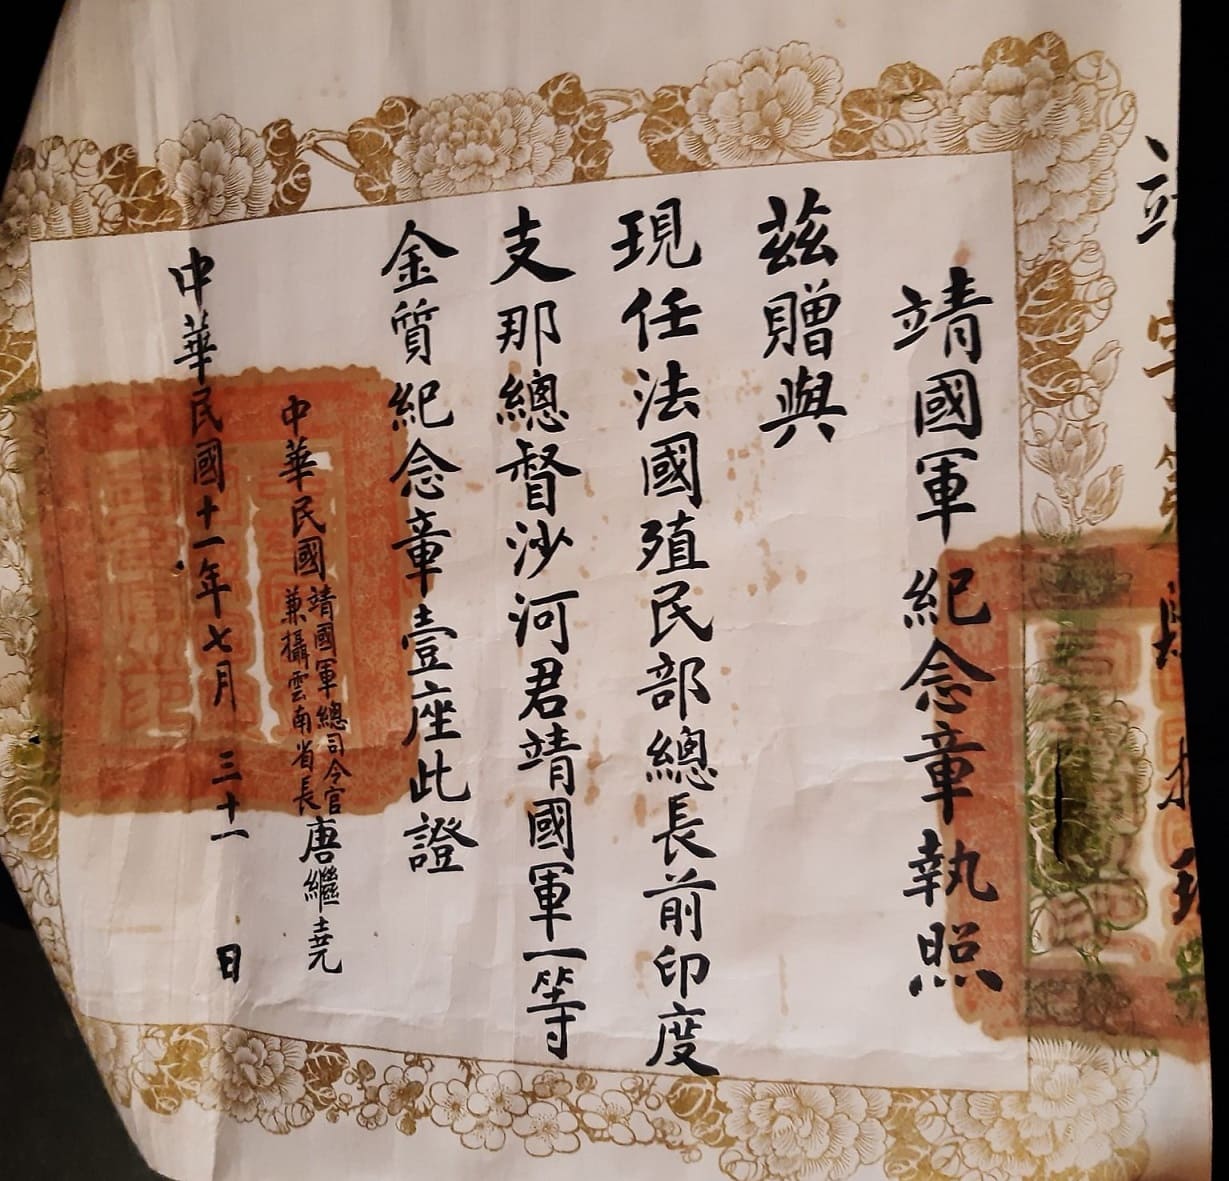 靖國軍紀念章執照
茲贈與
現任法國殖民部總長前印度
支那總督沙河君靖國軍一等
金質紀念章壹座此證
中華民國靖國軍總司令官
兼攝雲南省長唐繼堯
中華民國十一年七月三十一日